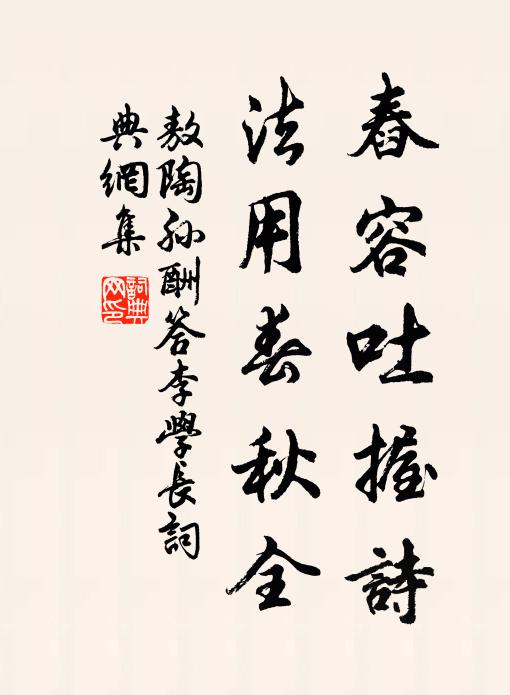 舂容吐握詩
法用春秋全
敖陶孫酬答李學長詞
典網集
詞典
网印